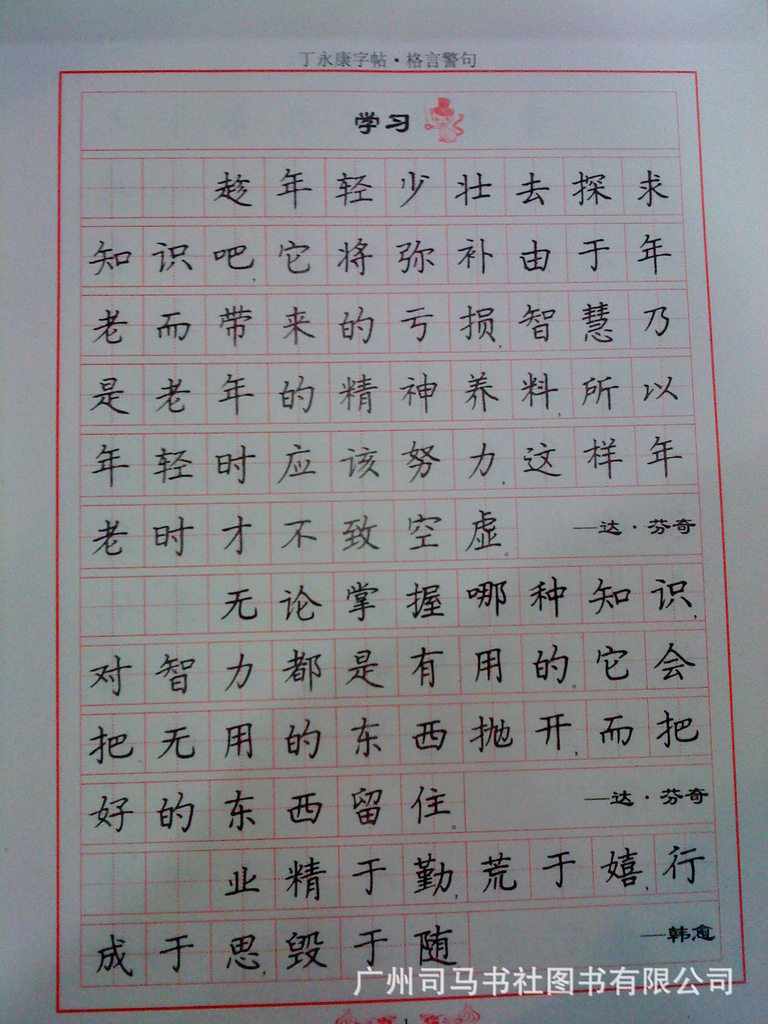 丁永康字帖·格言警句
学习
趁年轻少壮去探求
知识吧,它将弥补由于年
老而带来的亏损,智慧乃
是老年的精神养料,所以
年轻时应该努力,这样年
老时才不致空虚。—达·芬奇
无论掌握哪种知识,
对智力都是有用的。它会
把无用的东西抛开,而把
好的东西留住。—达·芬奇
业精于勤,荒于嬉,行
成于思,毁于随—韩愈
广州司马书社图书有限公司
1